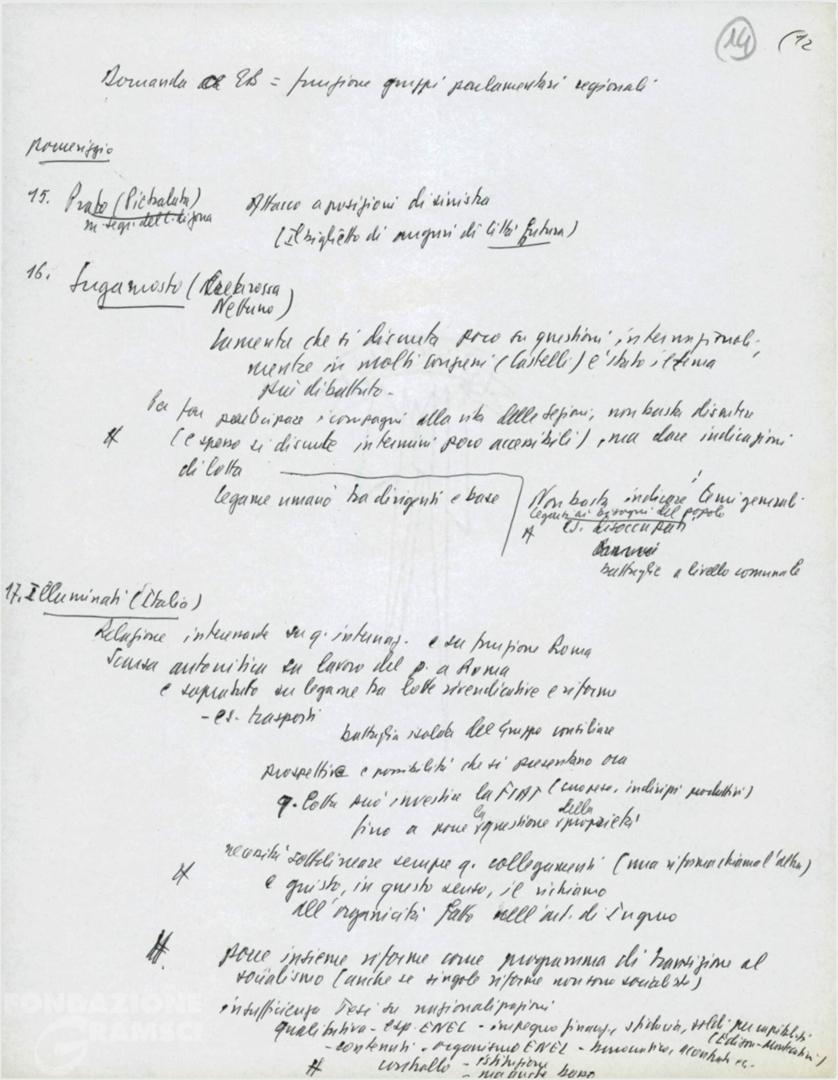 14 (12
Domanda EB = funzione gruppi parlamentari regionali
Pomeriggio
15. Prato (Pietralata) Attacco a posizioni di sinistra
m. segr. del c. di zona
(Il biglietto di auguri di Città futura)
16. Ingamosto (
Nettuno)
Lamenta che si discuta poco su questioni internazionali,
mentre in molti congressi (Castelli) è stato il tema
più dibattuto.
Per far partecipare i compagni alla vita delle sezioni, non basta discutere
# (e spesso si discute in termini poco accessibili), ma dare indicazioni
di lotta
legame umano tra dirigenti e base
Non basta indicare temi generali
legarsi ai bisogni del popolo
es. disoccupati
battaglie a livello comunale
17. Illuminati (Italia)
Relazione interessante su q. internaz. e su funzione Roma
Scarsa autocritica su lavoro del p. a Roma
e sopratuto su legame tra lotte rivendicative e riforme
- es. trasporti
battaglia isolata del Gruppo consiliare
prospettive e possibilità che si presentano ora
q. lotta può investire la FIAT (indirizzi produttivi)
fino a porre la questione della proprietà
necessità sottolineare sempre q. collegamenti (una riforma chiama l'altra)
è giusto, in questo senso, il richiamo
all'organicità fatto nell'art. di Ingrao
# porre insieme riforme come programma di transizione al
socialismo (anche se singole riforme non sono socialiste)
insufficienza Tesi su nazionalizzazioni
qualitativa - esp. ENEL - impegno finanz. soldi per capitalisti
(Edison-Montecatini)
- contenuti - organismo ENEL -
# controllo - istituzione
- ma anche base
FONDAZIONE
GRAMSCI